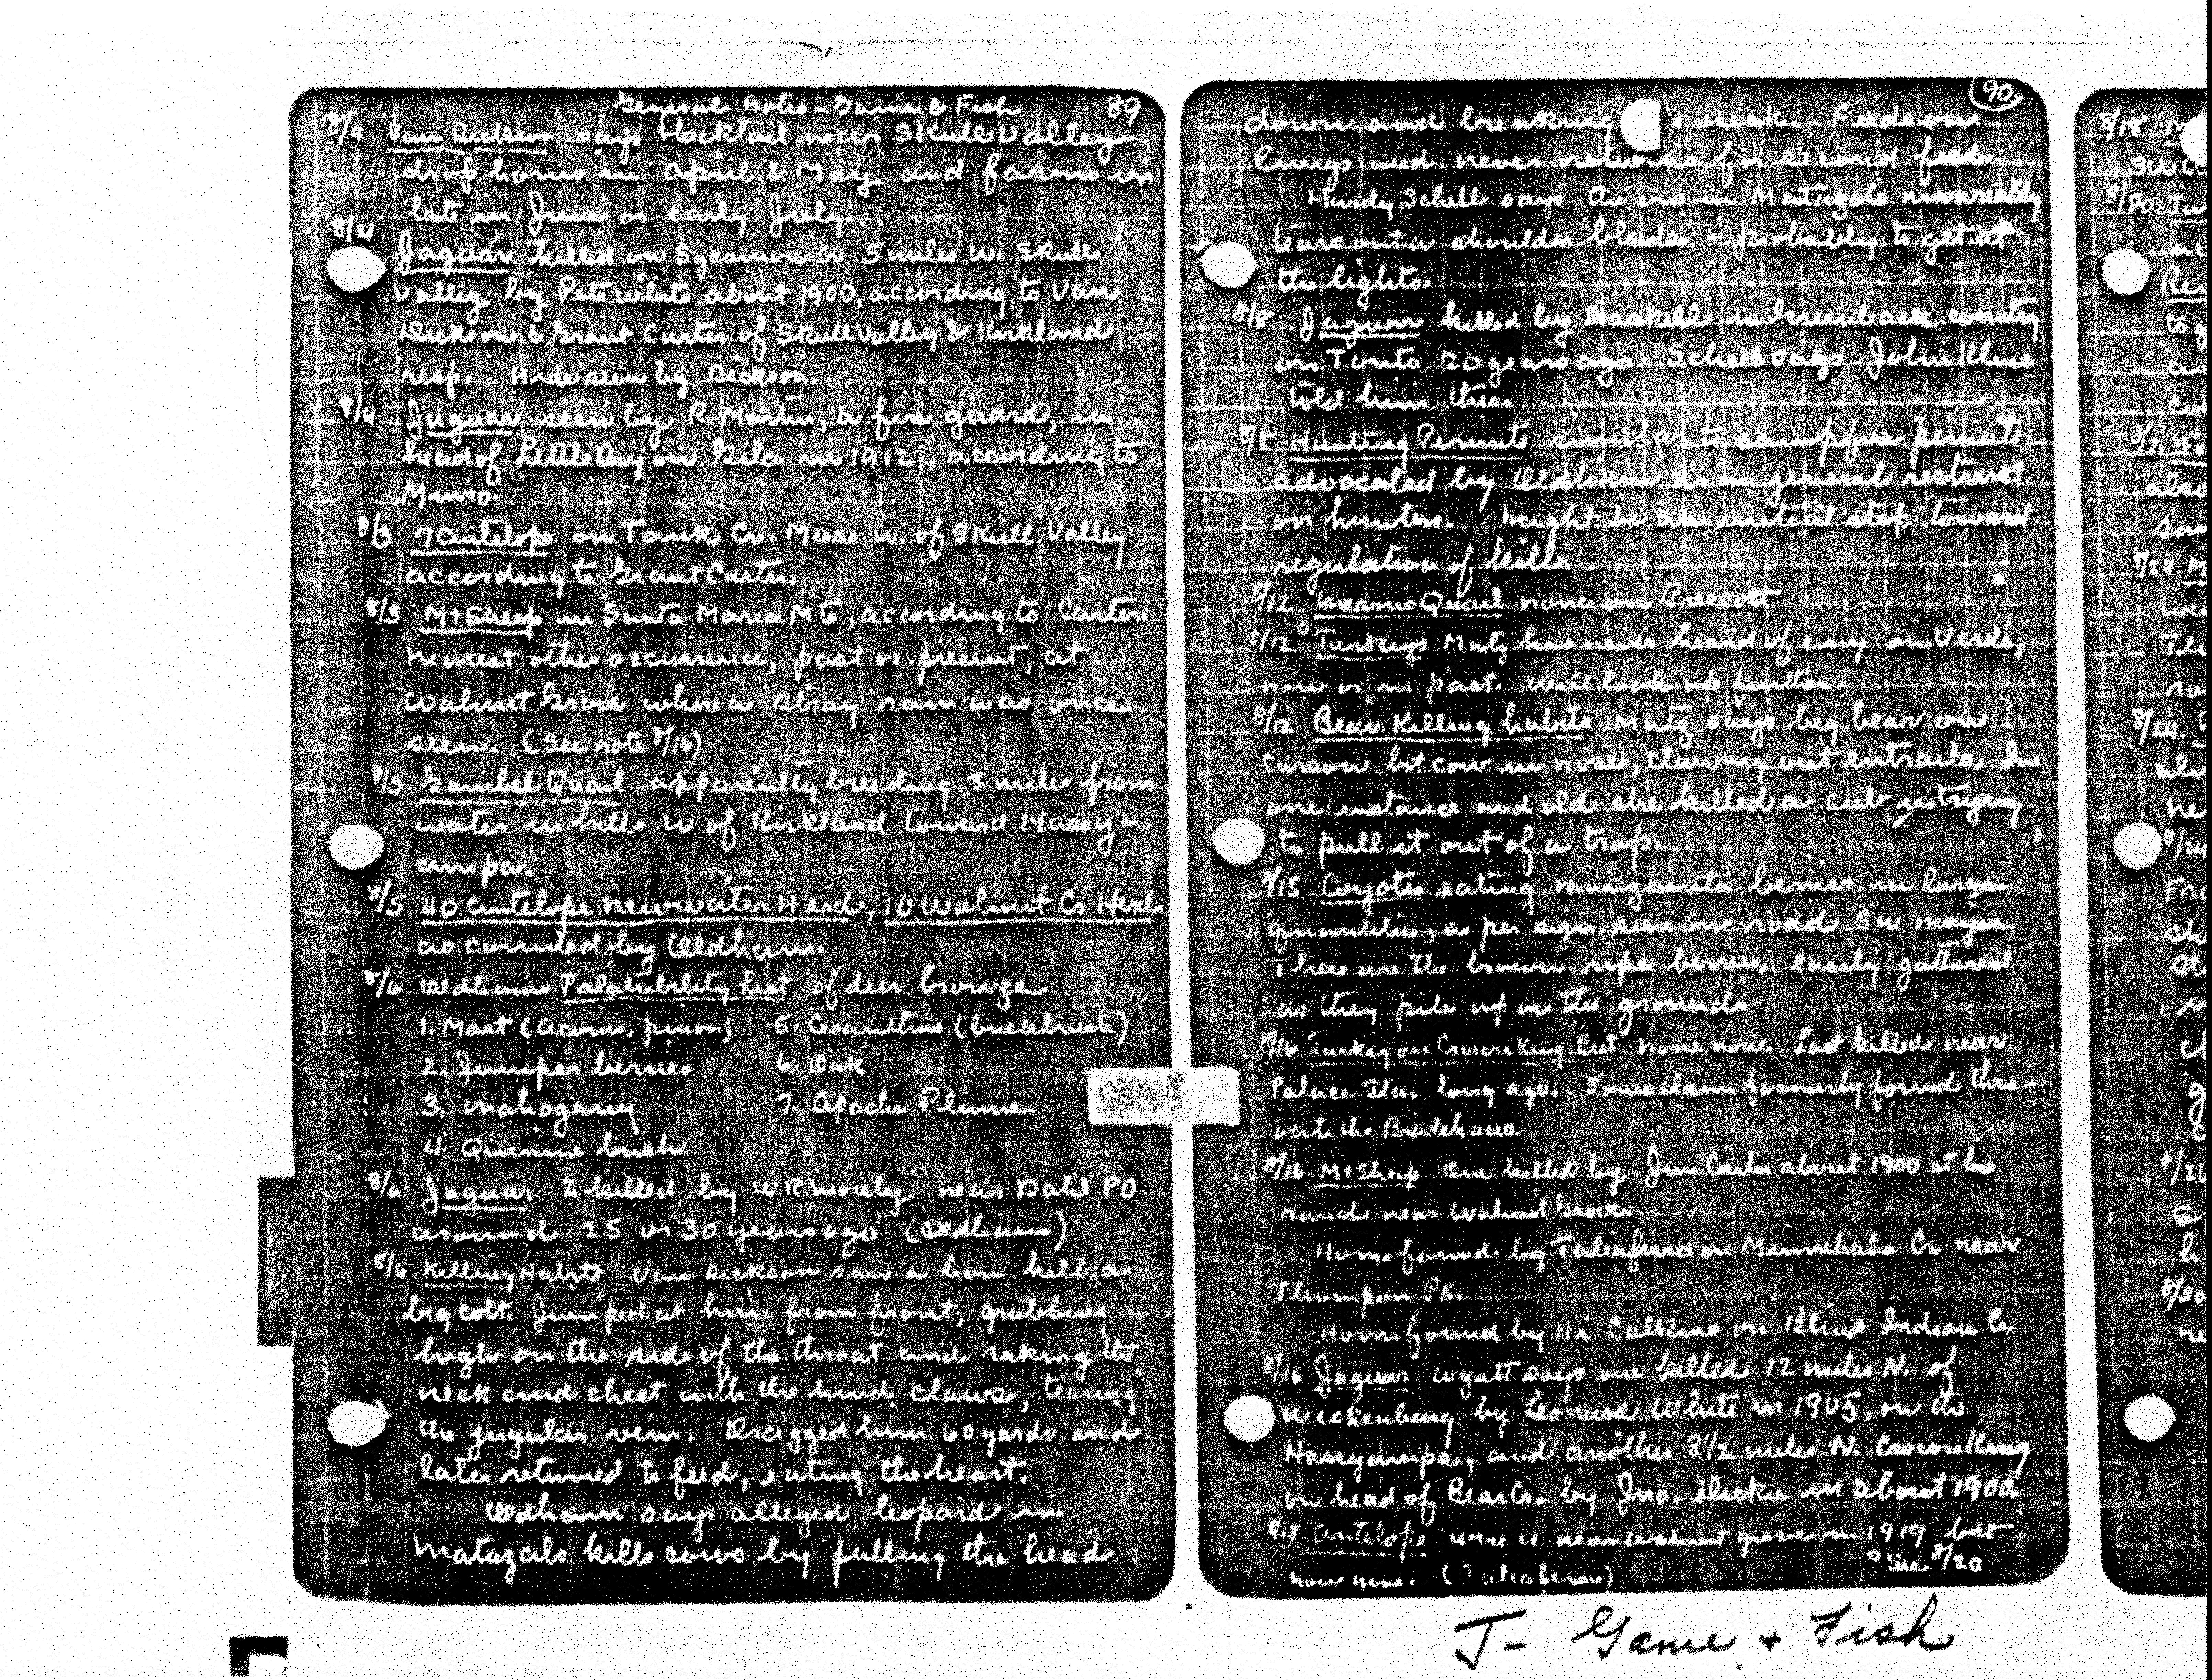 General Notes - Game & Fish 89
8/4 Van Dickson says blacktail near Skull Valley
drop horns in April & May and fawns in
late in June or early July.
8/4 Jaguar killed on Sycamore Cr 5 miles W. Skull
Valley by Pete White about 1900, according to Van
Dickson & Grant Carter of Skull Valley & Kirkland
resp. Hide seen by Dickson.
8/4 Jaguar seen by R. Martin, a fire guard, in
head of Little Dry on Gila in 1912, according to
Munro.
8/3 7 Antelope on Tank Cr. Mesa W. of Skull Valley
according to Grant Carter.
8/3 Mt Sheep in Santa Maria Mts, according to Carter.
nearest other occurrence, past or present, at
Walnut Grove where a stray ram was once
seen. (See note 8/16)
8/3 Gambel Quail apparently breeding 3 miles from
water in hills W of Kirkland toward Hassy-
ampa.
8/5 40 Antelope Newwater Herd, 10 Walnut Cr Herd
as counted by Oldham.
8/6 Oldhams Palatability List of deer browze
1. Mast (acorns, pinon) 5. Ceoanthus (buckbrush)
2. Juniper berries 6. Oak
3. Mahogany 7. Apache Plume
4. Quinine bush
8/6 Jaguar 2 killed by W R Morley near Datil PO
around 25 or 30 years ago (Oldham)
8/6 Killing Habits Van Dickson saw a lion kill a
big colt. Jumped at him from front, grabbing
high on the side of the throat and raking the
neck and chest with the hind claws, tearing
the jugular vein. Dragged him 60 yards and
later returned to feed, eating the heart.
Oldham says alleged leopard in
Matazals kills cows by pulling the head
90
down and breaking neck. Feeds on
lungs and never returns for second feed.
Hardy Schell says the one in Matazals invariably
tears out a shoulder blade - probably to get at
the lights.
8/8 Jaguar killed by Haskell in Greenback country
on Tonto 20 years ago. Schell says John Kline
told him this.
8/8 Hunting Permits similar to campfire permits
advocated by Oldham as a general restraint
on hunters. Might be an initial step toward
regulation of kill.
8/12 Mearns Quail none on Prescott
8/12 ° Turkeys Mutz has never heard of any on Verde,
now or in past. Will look up further.
8/12 Bear Killing habits Mutz says big bear on
Carson bit cow in nose, clawing out entrails. In
one instance and old she killed a cub in trying
to pull it out of a trap.
8/15 Coyotes eating manzanita berries in large
quantities, as per sign seen on road SW Mayer.
These are the brown ripe berries, easily gathered
as they pile up on the ground.
8/16 Turkey on Crown King Dist none now. Last killed near
Palace Sta. long ago. Some claim formerly found thru-
out the Bradshaws.
8/16 Mt Sheep One killed by Jim Carter about 1900 at his
ranch near Walnut Grove.
Horns found by Taliaferro on Minnehaha Cr. near
Thompson Pk.
Horns found by Hi Calkins on Blind Indian Cr.
8/16 Jaguar Wyatt says one killed 12 miles N. of
Wickenburg by Leonard White in 1905, on the
Hassyampa, and another 3 1/2 miles N. Crown King
on head of Bear Cr. by Jno. Dickie in about 1900.
8/18 Antelope were near Walnut Grove in 1919 but
now gone. (Taliaferro) ° See 8/20
8/18
8/20
8/21
8/24
8/24
8/30
J- Game + Fish